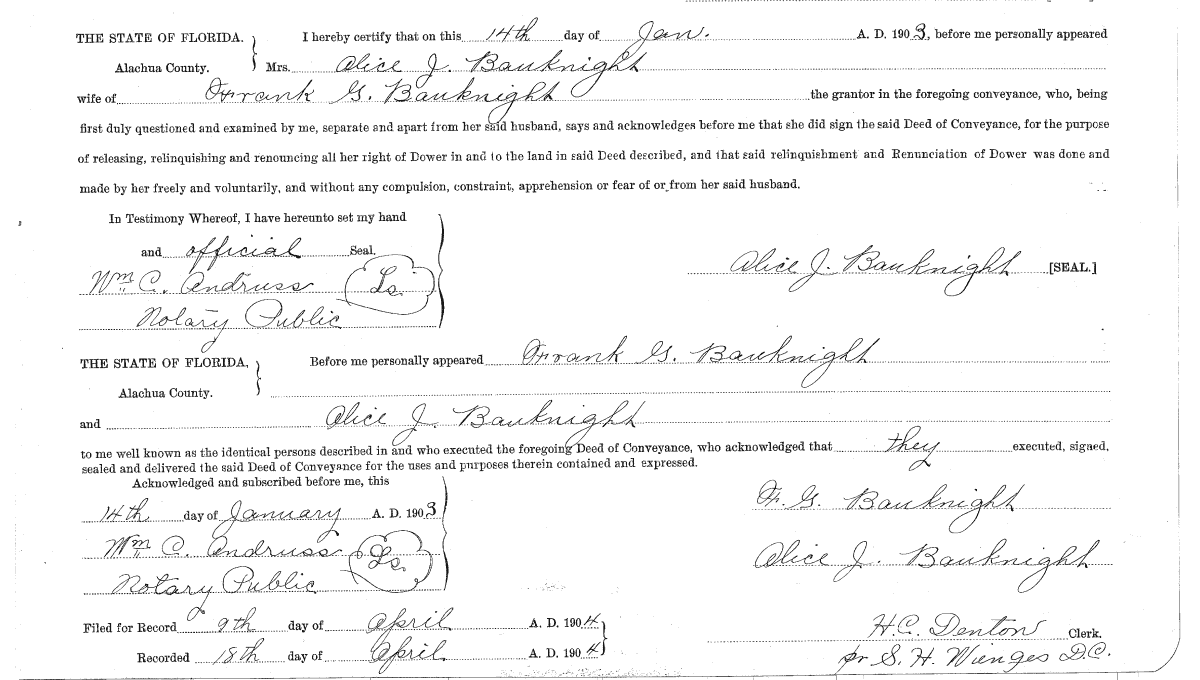 THE STATE OF FLORIDA. } I hereby certify that on this 14th day of Jan. A. D. 1903, before me personally appeared
Alachua County. Mrs. Alice J. Bauknight
wife of Frank G. Bauknight the grantor in the foregoing conveyance, who, being
first duly questioned and examined by me, separate and apart from her said husband, says and acknowledges before me that she did sign the said Deed of Conveyance, for the purpose
of releasing, relinquishing and renouncing all her right of Dower in and to the land in said Deed described, and that said relinquishment and Renunciation of Dower was done and
made by her freely and voluntarily, and without any compulsion, constraint, apprehension or fear of or from her said husband.
In Testimony Whereof, I have hereunto set my hand
and official Seal.
Alice J. Bauknight [SEAL.]
Wm C. Andruss Ls.
Notary Public
THE STATE OF FLORIDA, } Before me personally appeared Frank G. Bauknight
Alachua County.
and Alice J. Bauknight
to me well known as the identical persons described in and who executed the foregoing Deed of Conveyance, who acknowledged that they executed, signed,
sealed and delivered the said Deed of Conveyance for the uses and purposes therein contained and expressed.
Acknowledged and subscribed before me, this
14th day of January A. D. 1903
F. G. Bauknight
Wm C. Andruss Ls.
Alice J. Bauknight
Notary Public
Filed for Record 9th day of April A. D. 1904
H.C. Denton Clerk.
Recorded 18th day of April A. D. 1904
pr S. H. Wienges D.C.